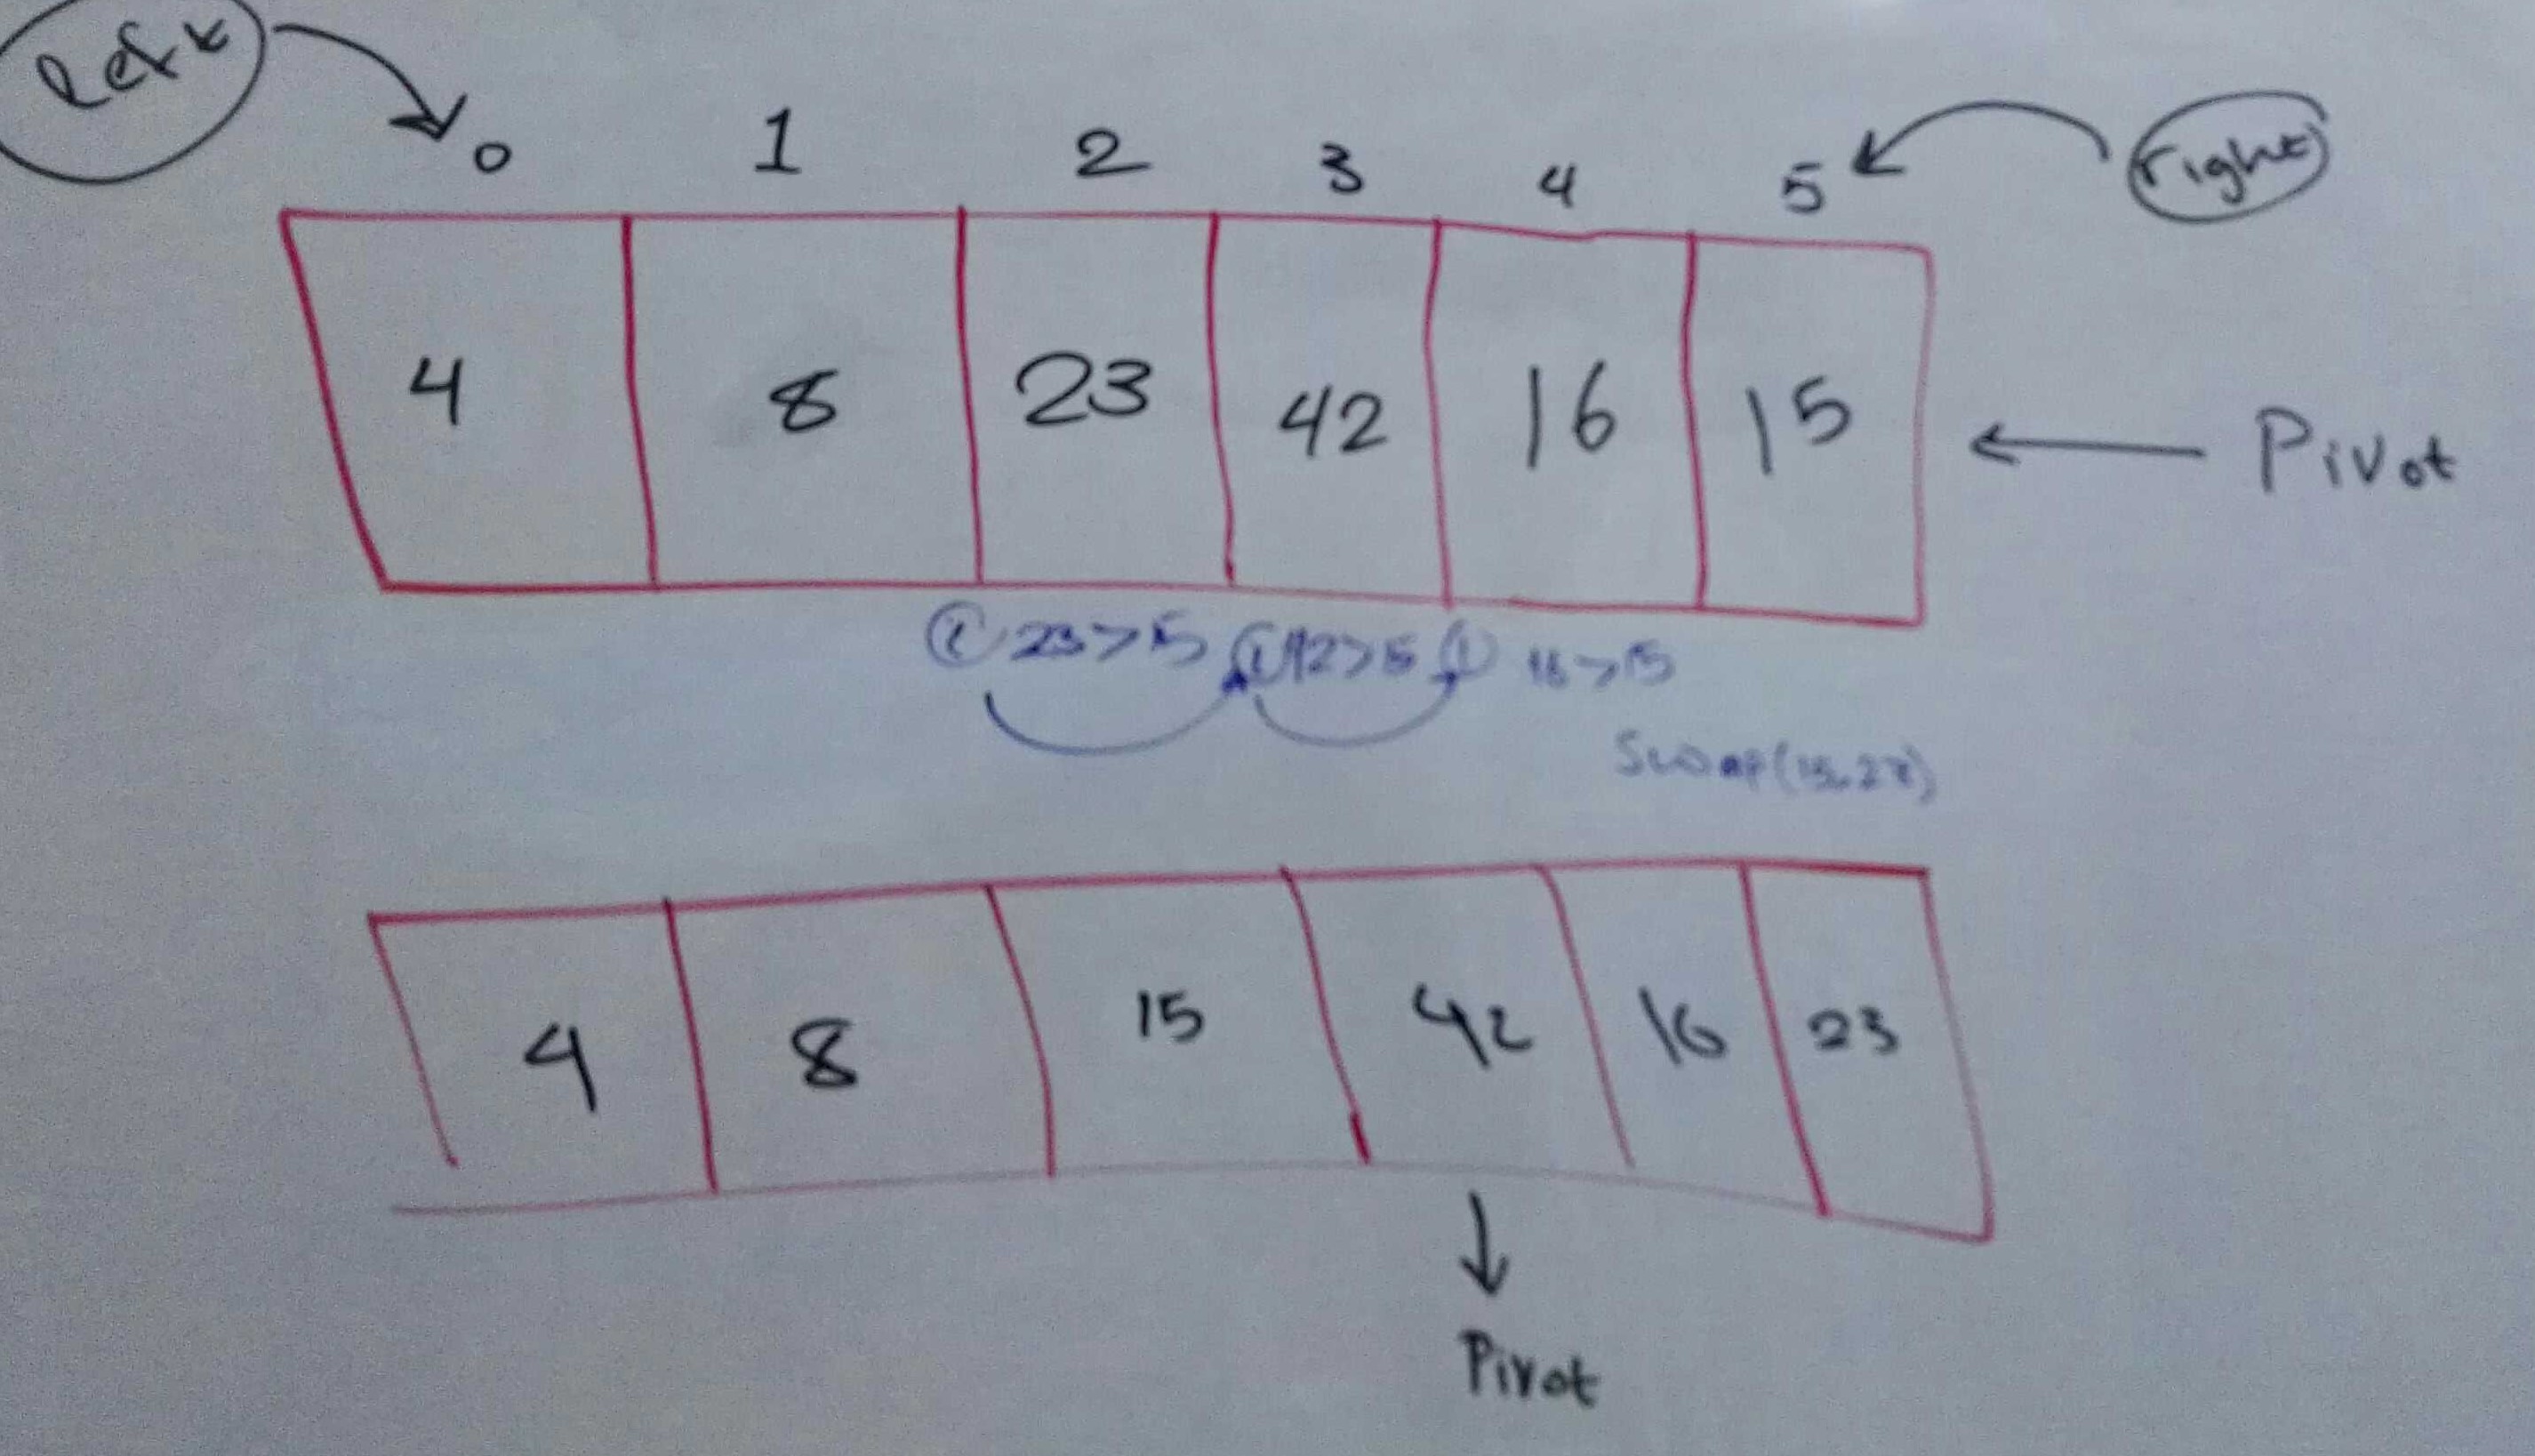 left
0 1 2 3 4 5 right
4 8 23 42 16 15 Pivot
i 23>15 i 42>15 i 16>15
Swap(15,23)
4 8 15 42 16 23
Pivot